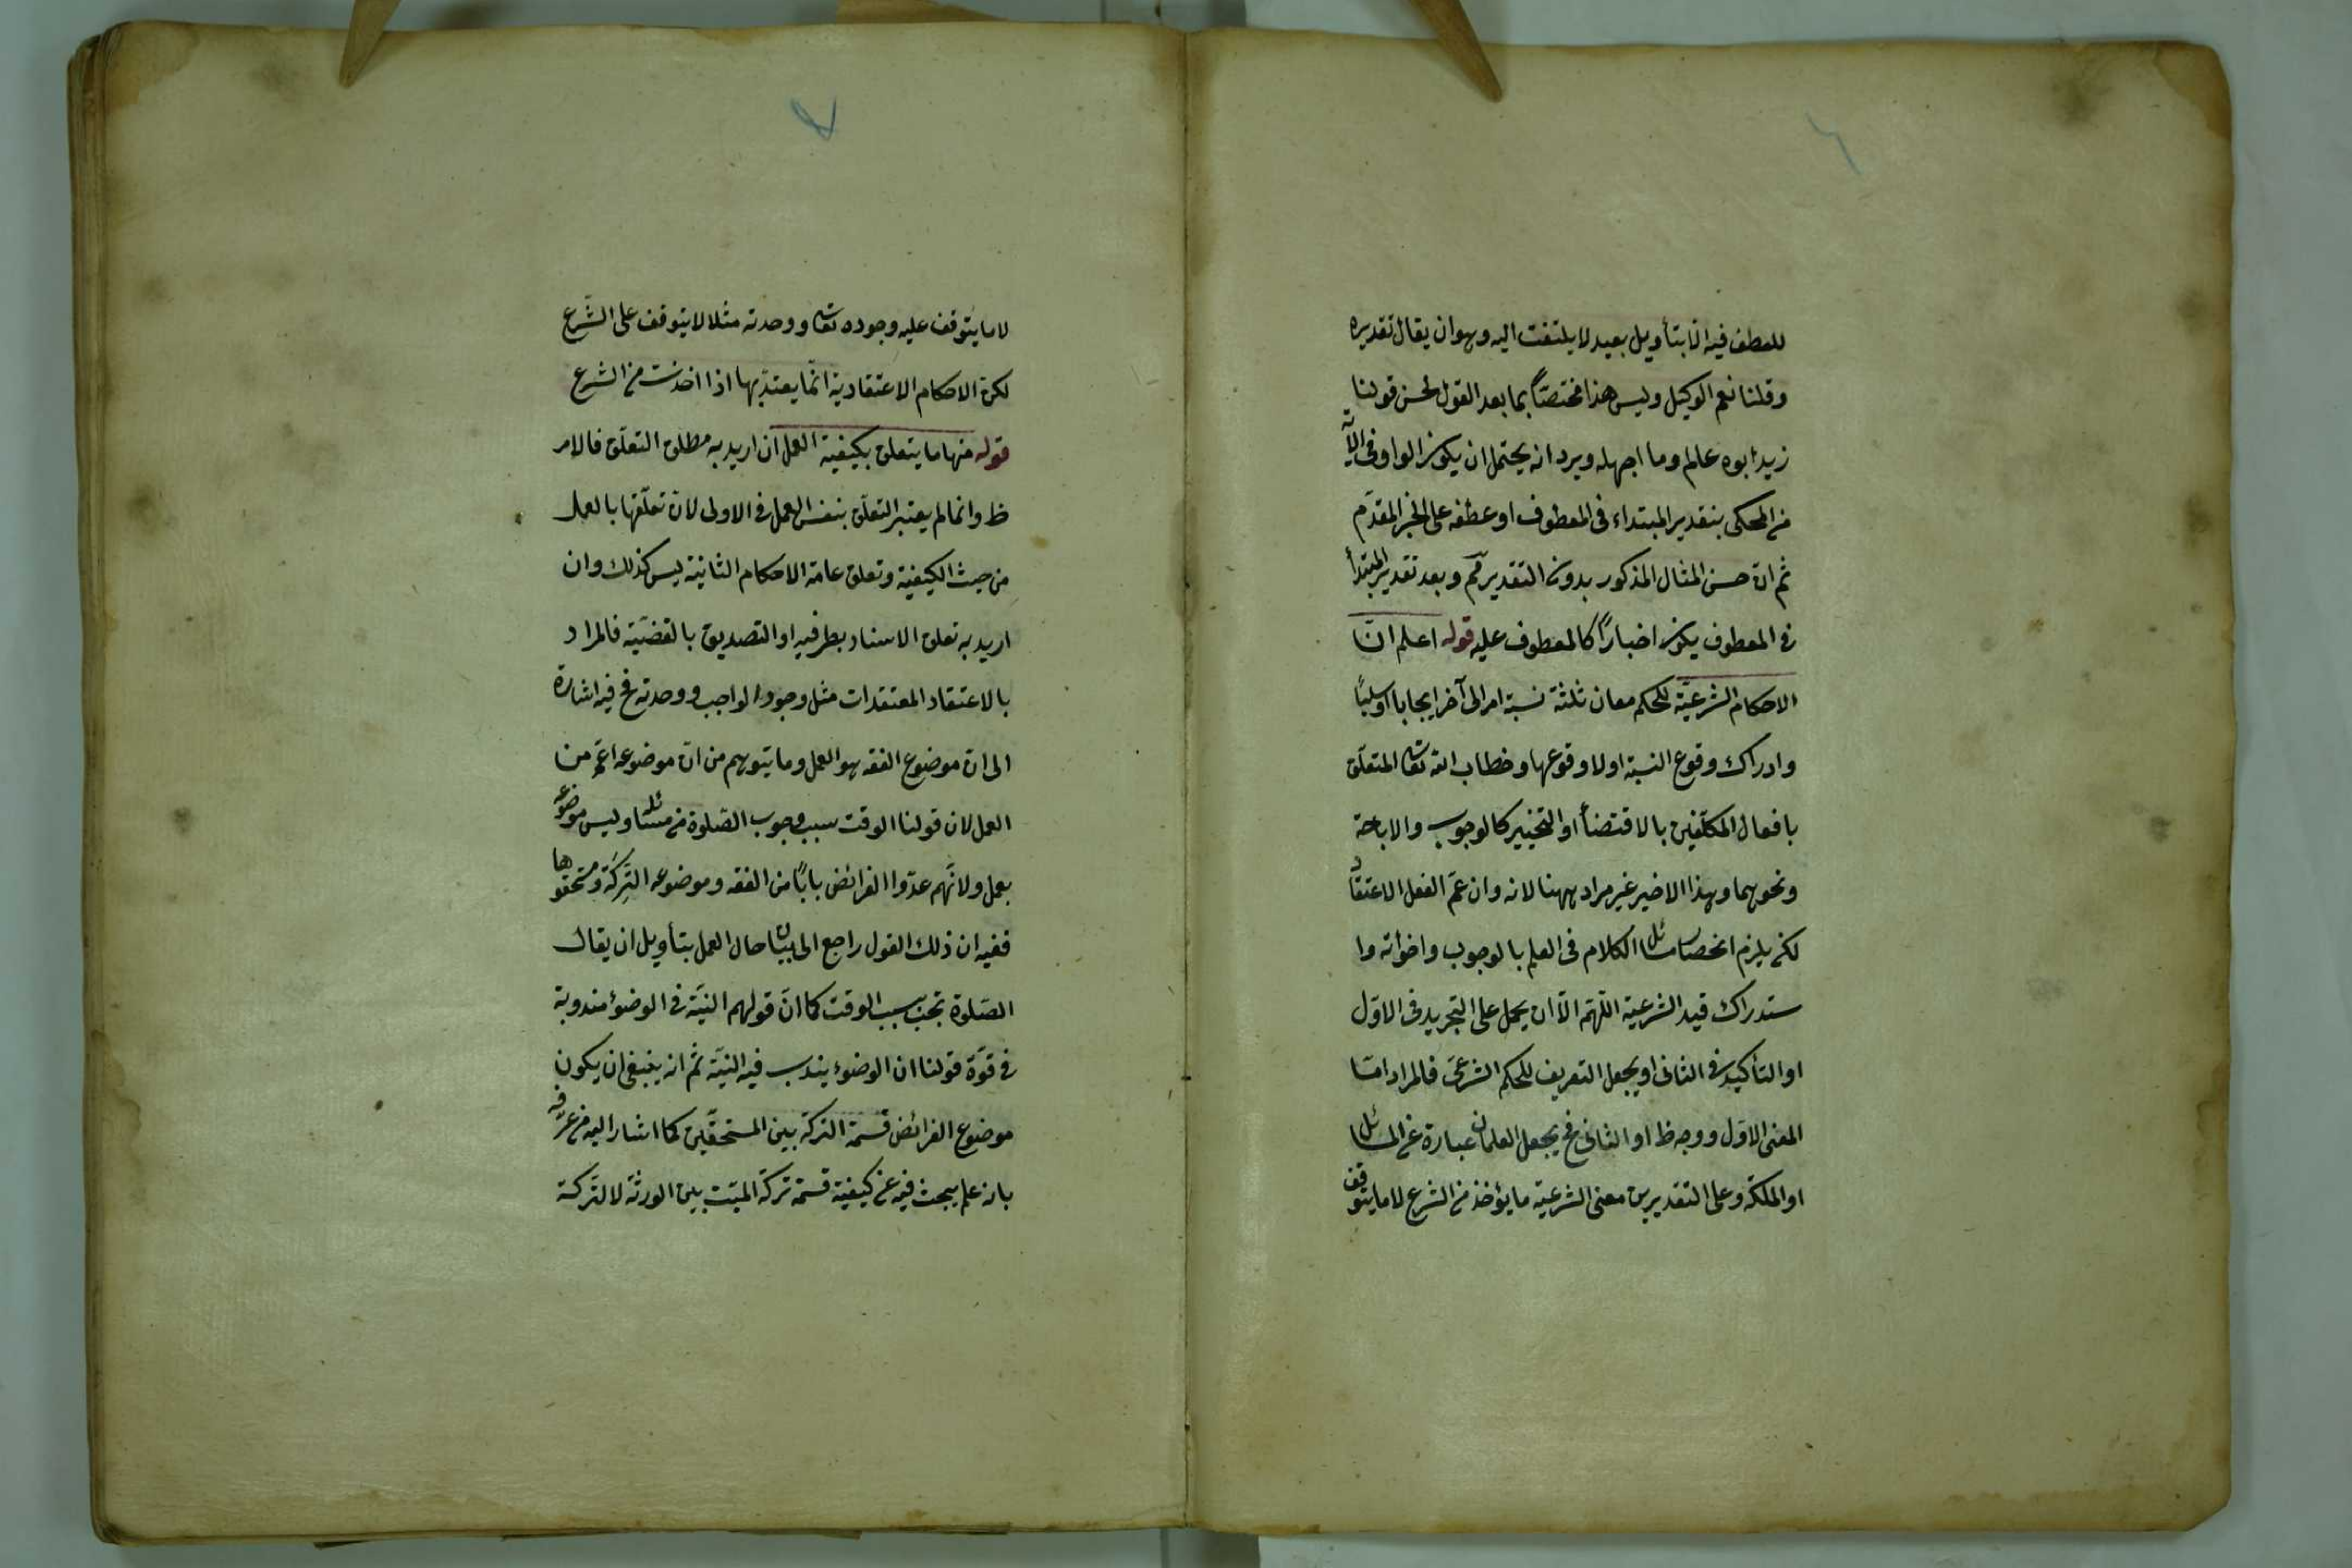 ٦
للعطف فيه الا بتأويل بعيد لا يلتفت اليه وهو ان يقال تقديره
وقلنا نعم الوكيل وليس هذا مختصّاً بما بعد القول لحسن قولنا
زيد ابوه عالم وما اجهله ويرد انه يحتمل ان يكون الواو فى الآية
من المحكى بتقدير المبتداء فى المعطوف او عطفه على الخبر المقدّم
ثم انّ حسن المثال المذكور بدون التقدير مّم وبعد تقدير المبتدأ
فى المعطوف يكون اخباراً كالمعطوف عليه قوله اعلم انّ
الاحكام الشرعيّة للحكم معان ثلثة نسبة امر الى آخر ايجابا او سلباً
وادراك وقوع النسبة اولا وقوعها وخطاب الله تعالى المتعلّق
بافعال المكلّفين بالاقتضأ او التخيير كالوجوب والاباحة
ونحوهما وهذا الاخير غير مراد ههنا لانه وان عمّ الفعل الاعتقاد
لكن يلزم انحصار مسائل الكلام فى العلم بالوجوب واخوأته وا
ستدراك قيد الشرعية اللّهمّ الاّ ان يحمل على التجريد فى الاوّل
او التأكيد فى الثانى او يجعل التعريف للحكم الشرعىّ فالمراد امّا
المعنى الاوّل ووجه ظ او الثانى فح يجعل العلمان عبارة عن المسائل
او الملكة وعلى التقديرين معنى الشرعية ما يؤخذ من الشرع لا ما يتوقف
٧
لا ما يتوقف عليه وجوده تعالى ووحدته مثلا لا يتوقف على الشّرع
لكنّ الاحكام الاعتقادية انّما يعتدّ بها اذا اخذت من الشرع
قوله منها ما يتعلق بكيفية العمل ان اريد به مطلق التعلّق فالامر
ظ وانما لم يعتبر التعلّق بنفس العمل فى الاولى لانّ تعلّقها بالعمل
من حيث الكيفيّة وتعلق عامة الاحكام الثانية ليس كذلك وان
اريد به تعلق الاسناد بطرفيه او التصديق بالقضيّة فالمراد
بالاعتقاد المعتقدات مثل وجود الواجب ووحدته فح فيه اشارة
الى انّ موضوع الفقه هو العمل وما يتوهم من انّ موضوعه اعّم من
العمل لان قولنا الوقت سبب وجوب الصّلوة من مسائله وليس موضوعه
بعمل ولانّهم عدّوا الفرائض باباً من الفقه وموضوعه التِركَة ومستحقوها
ففيه ان ذلك القول راجع الى بيان حال العمل بتأويل ان يقال
الصّلوة تجب بسبب الوقت كما انّ قولهم النيّة فى الوضوْ مندوبة
فى قوّة قولنا ان الوضوء يندب فيه النيّة ثم انه ينبغى ان يكون
موضوع الفرائض قسمة التركة بين المستحقّين كما اشار اليه من عرّفه
بانه علم يبحث فيه عن كيفيّة قسمة تركة الميّت بين الورثة لا التّركة